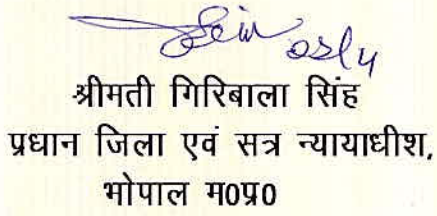 श्रीमती गिरिबाला सिंह
प्रधान जिला एवं सत्र न्यायाधीश,
भोपाल म0प्र0